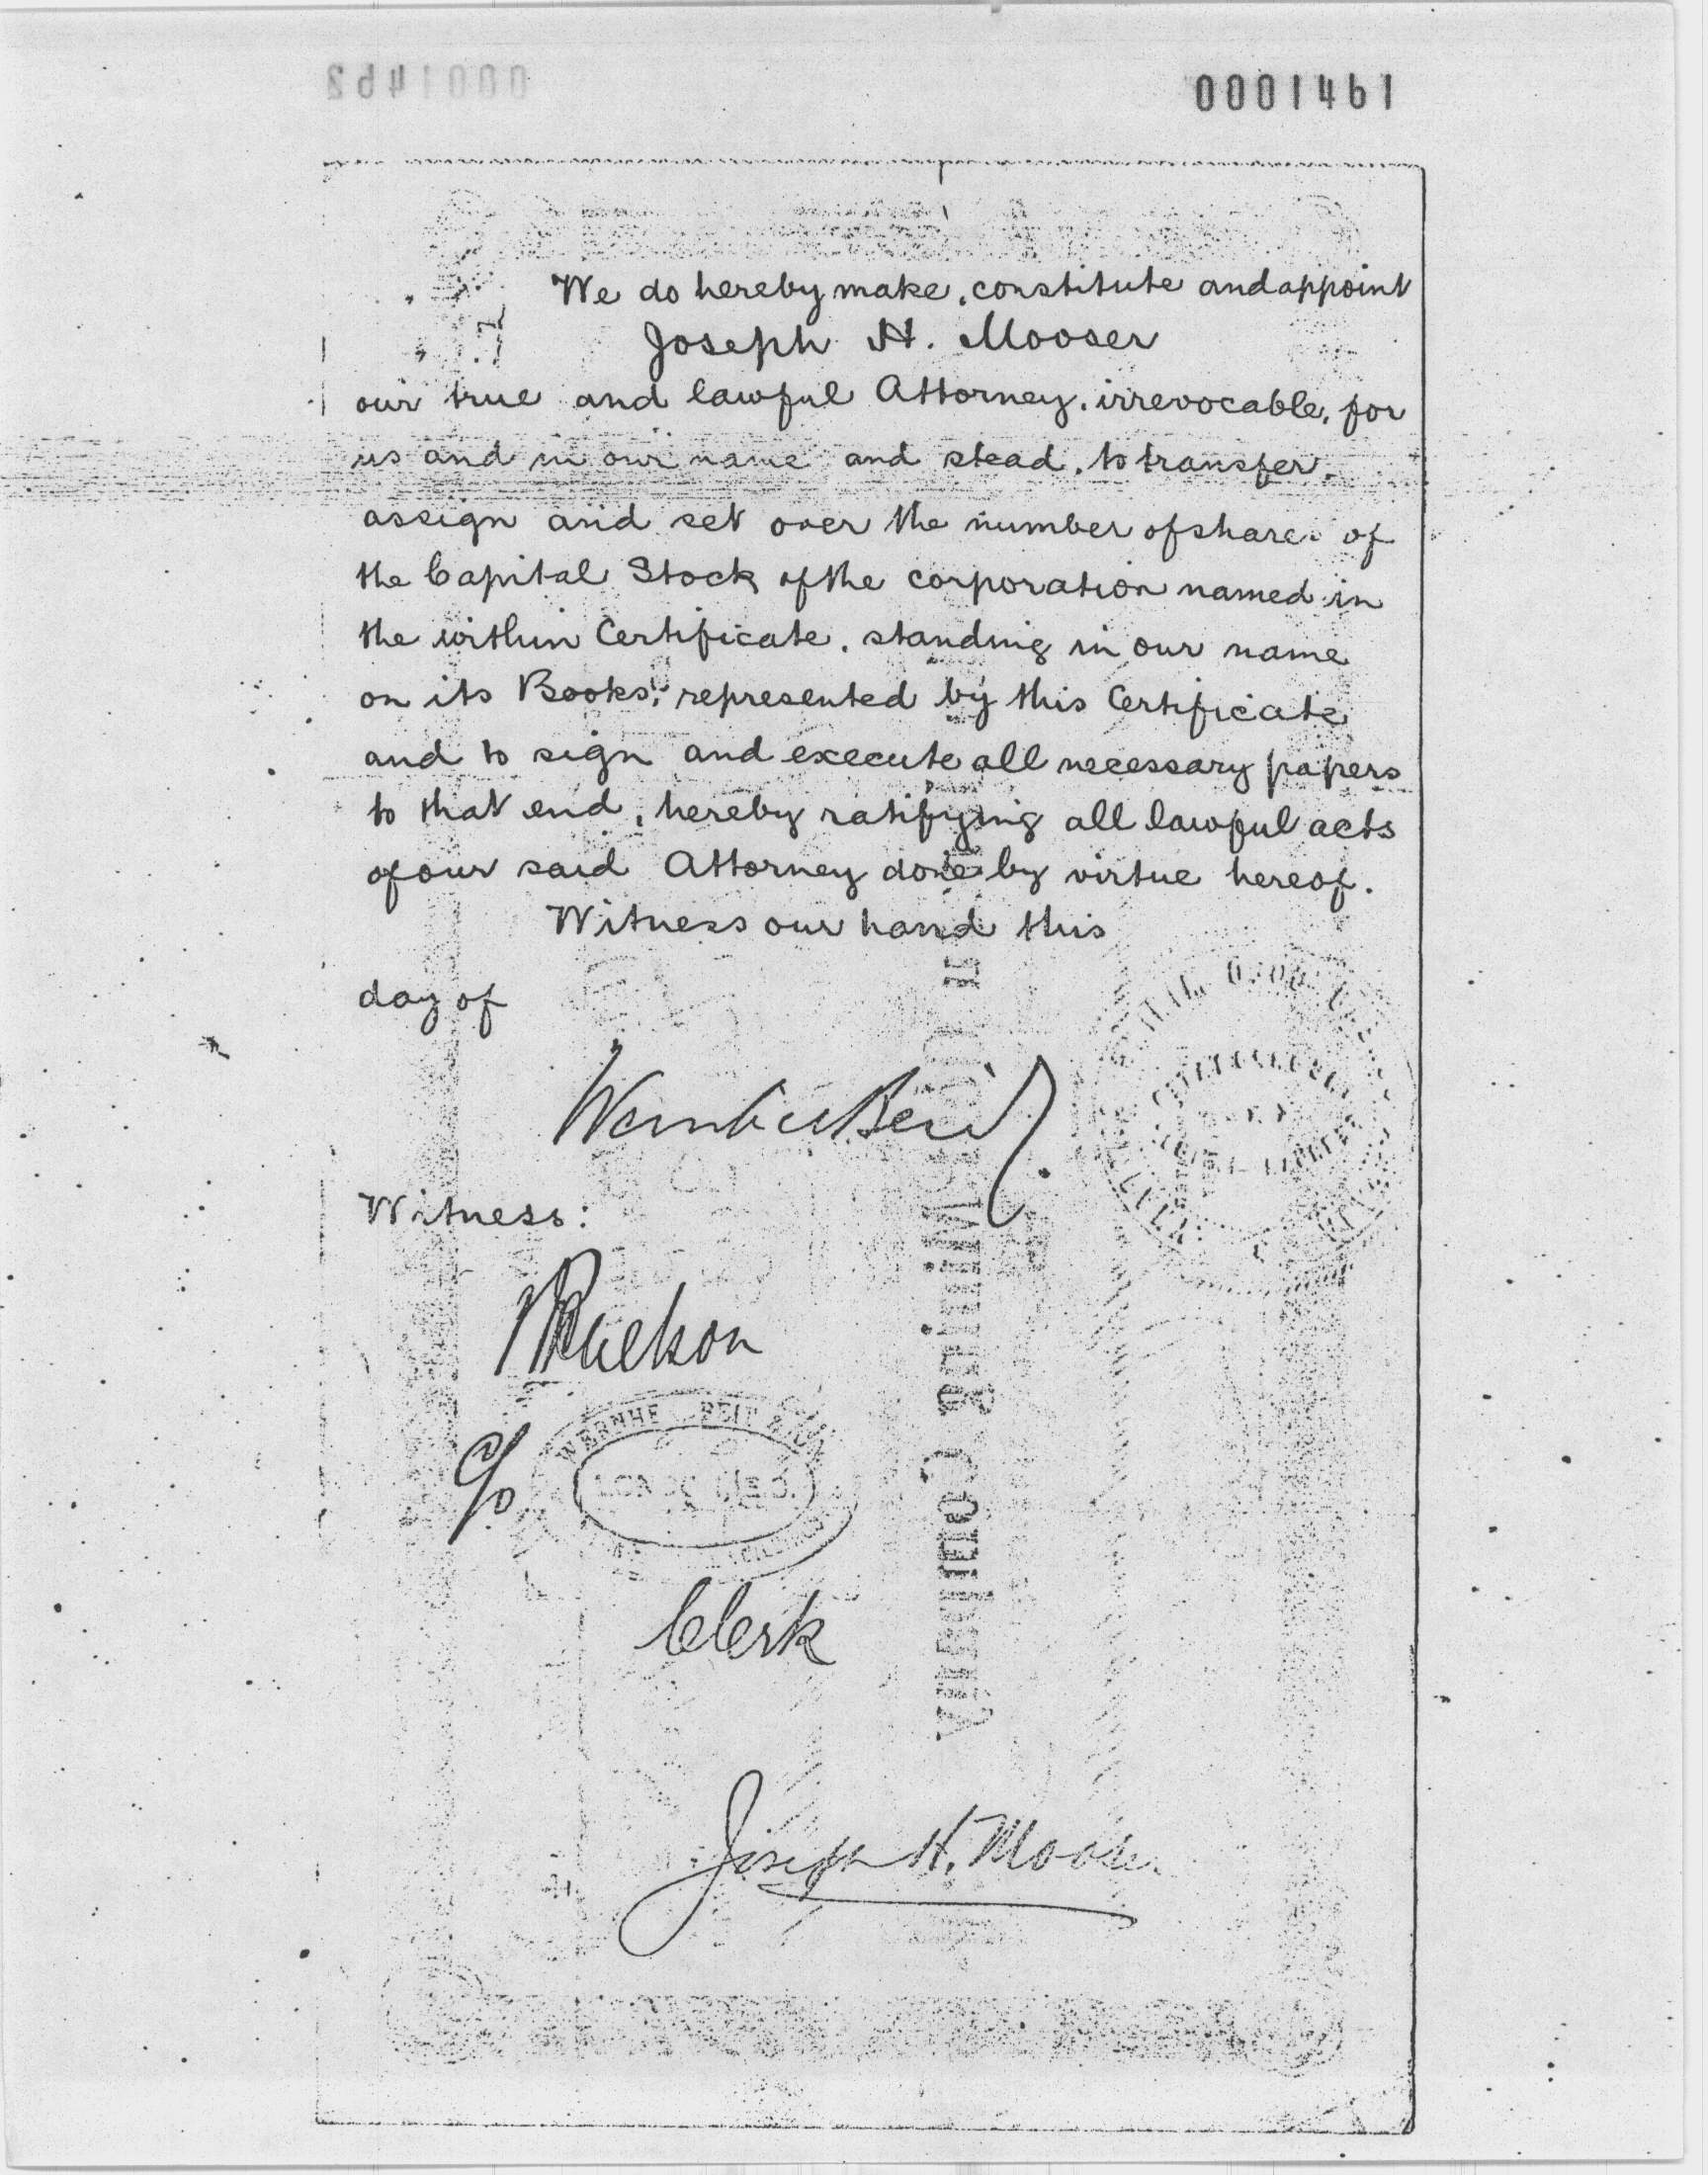 0001461
We do hereby make, constitute and appoint
Joseph H. Mooser
our true and lawful Attorney, irrevocable, for
us and in our name and stead, to transfer,
assign and set over the number of shares of
the Capital Stock of the corporation named in
the within Certificate, standing in our name
on its Books, represented by this Certificate
and to sign and execute all necessary papers
to that end, hereby ratifying all lawful acts
of our said Attorney done by virtue hereof.
Witness our hand this
day of
Witness:
c/o
Clerk
Joseph H. Mooser